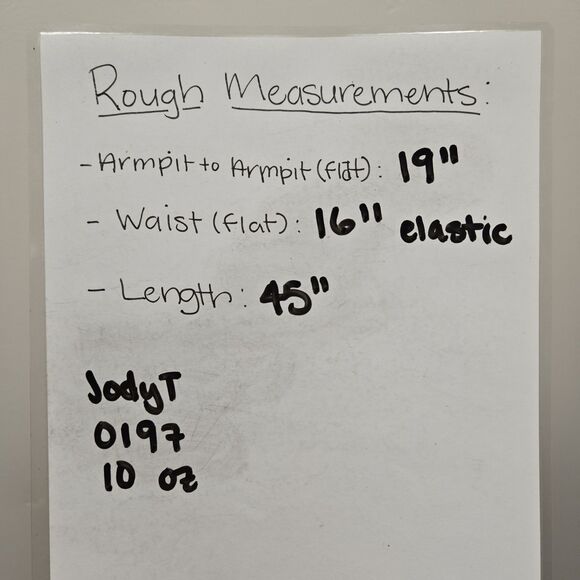 Rough Measurements:
- Armpit to Armpit (flat): 19"
- Waist (flat): 16" elastic
- Length: 45"
JodyT
0197
10 oz